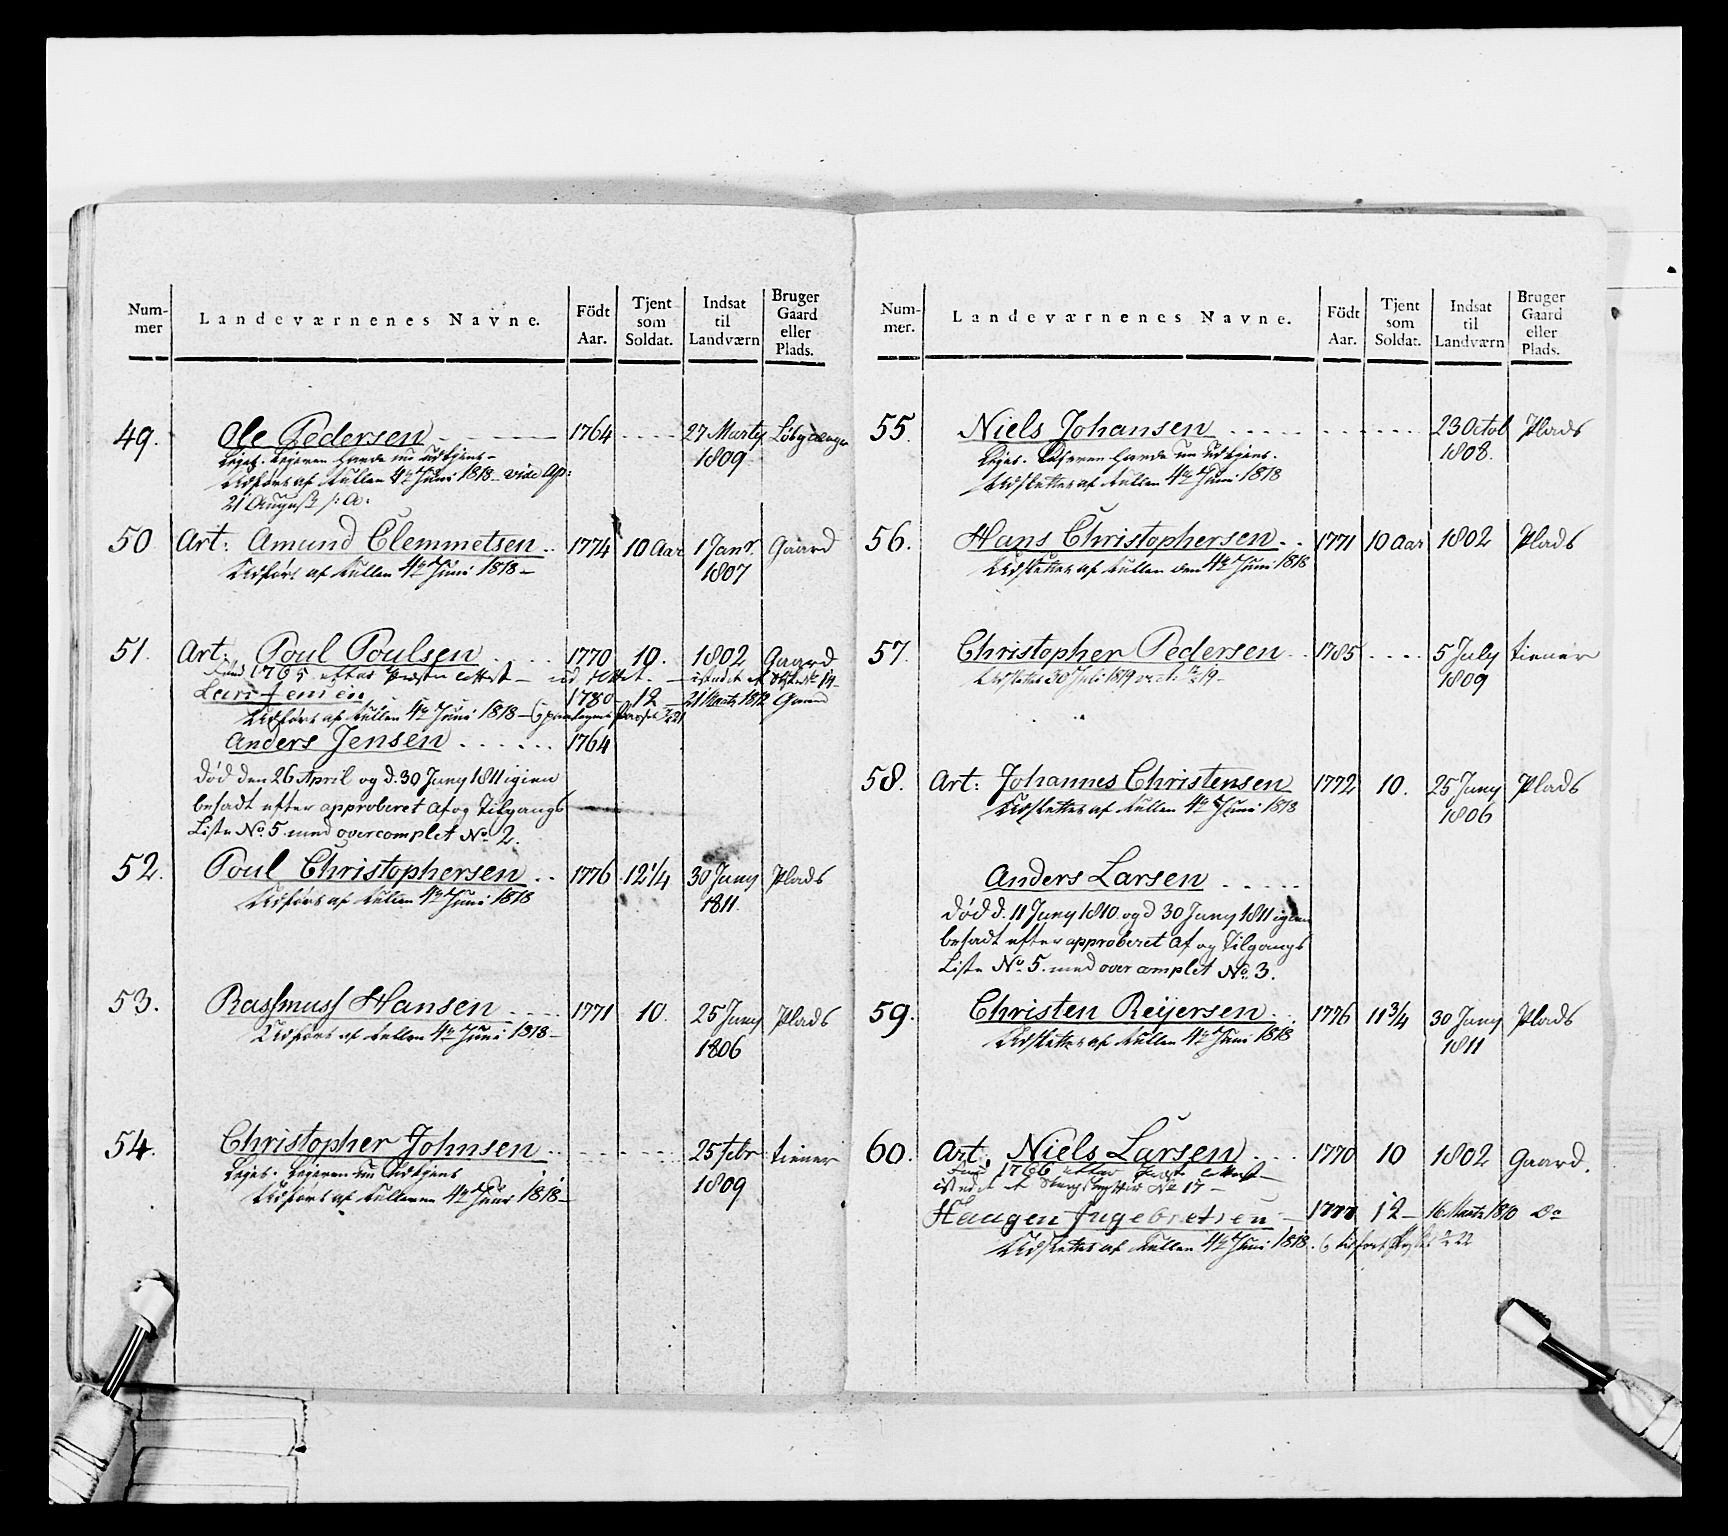 Num-
mer
Landeværnenes Navne.
Födt
Aar.
Tjent
som
Soldat.
Indsat
til
Landværn
Bruger
Gaard
eller
Plads.
49. Ole Pedersen 1764 27 Martij
1809
Udføres af Rullen 4de Juni 1818
21 August
50 Art: Amund Clemmetsen 1774 10 Aar 1 Janr. Gaard
1807
Udføres af Rullen 4de Juni 1818
51. Art: Poul Poulsen 1770 10. 1802 Gaard
1765 efter
Lars Jensen 1780 12 21 Martz 1812 Gaard
Udføres af Rullen 4de Juni 1818
Anders Jensen 1764
død den 26 April og d. 30 Juny 1811 igien
besadt efter approberet Af og Tilgangs
Liste No. 5. med overcomplet No. 2.
52. Poul Christophersen 1776 12 1/4 30 Juny Plads
1811.
Udføres af Rullen 4de Juni 1818
53. Rassmuss Hansen 1771 10. 25 Juny Plads
1806
Udføres af Rullen 4de Juni 1818
54. Christopher Johnsen 25 febr tiener
1809
Udføres af Rullen 4de Juni 1818
Num-
mer.
Landeværnenes Navne.
Födt
Aar.
Tjent
som
Soldat.
Indsat
til
Landværn
Bruger
Gaard
eller
Plads.
55. Niels Johansen 23 Octob Plads
1808.
Udslettes af Rullen 4de Juni 1818
56. Hans Christophersen 1771 10 Aar 1802 Plads
Udslettes af Rullen den 4de Juni 1818
57. Christopher Pedersen 1785 5 July tiener
1809
Udslettes 30 Juli 1819
58. Art: Johannes Christensen 1772 10. 25 Juny Plads
1806
Udslettes af Rullen 4de Juni 1818
Anders Larsen
død d. 11 Juny 1810 og d 30 Juny 1811 igien
besadt efter approberet Af og Tilgangs
Liste No. 5. med over complet No. 3.
59. Christen Reijersen 1776 11 3/4 30 Juny Plads
1811
Udslettes af Rullen 4de Juni 1818
60. Art. Niels Larsen 1770 10 1802 Gaard.
1766 efter
Haagen Ingebretsen 1777 12 16 Martz 1810 Do
Udslettes af Rullen 4de Juni 1818.